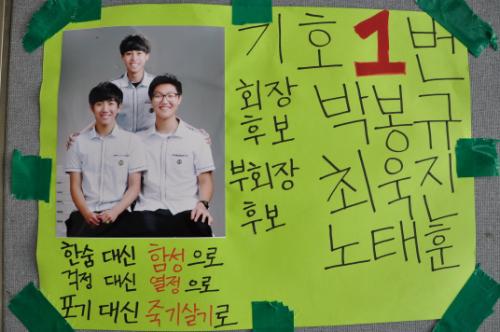 기호 1번
회장 후보 박봉규
부회장 후보 최욱진
노태훈
한숨 대신 함성으로
걱정 대신 열정으로
포기 대신 죽기살기로